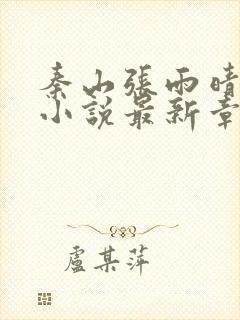 秦山張雨晴
小說最新章
盧某萍